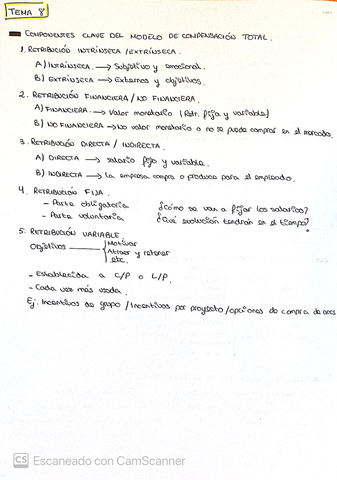 TEMA 8
COMPONENTES CLAVE DEL MODELO DE COMPENSACIÓN TOTAL.
1. RETRIBUCIÓN INTRÍNSECA / EXTRÍNSECA.
A) INTRÍNSECA. → Subjetivo y emocional.
B) EXTRÍNSECA → Externos y objetivos.
2. RETRIBUCIÓN FINANCIERA / NO FINANCIERA.
A) FINANCIERA. → Valor monetario (Retr. fija y variable)
B) NO FINANCIERA → No valor monetario o no se puede comprar en el mercado.
3. RETRIBUCIÓN DIRECTA / INDIRECTA.
A) DIRECTA → salario fijo y variable.
B) INDIRECTA → La empresa compra o produce para el empleado.
4. RETRIBUCIÓN FIJA.
- Parte obligatoria ¿Cómo se van a fijar los salarios?
- Parte voluntaria ¿Qué evolución tendrán en el tiempo?
5. RETRIBUCIÓN VARIABLE.
Objetivos → Motivar
Atraer y retener
etc.
- Establecida a C/P o L/P.
- Cada vez más usada.
Ej: Incentivos de grupo / Incentivos por proyecto / opciones de compra de accs
CS Escaneado con CamScanner